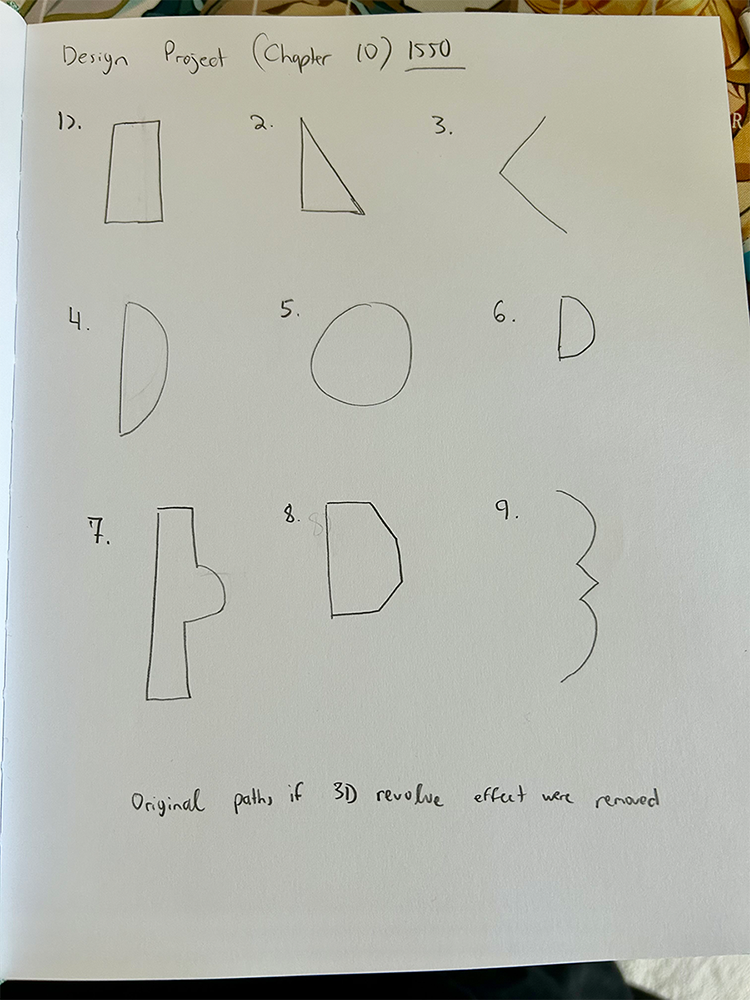 Design Project (Chapter 10) 1550
1).
2.
3.
4.
5.
6.
7.
8.
9.
Original paths if 3D revolve effect were removed